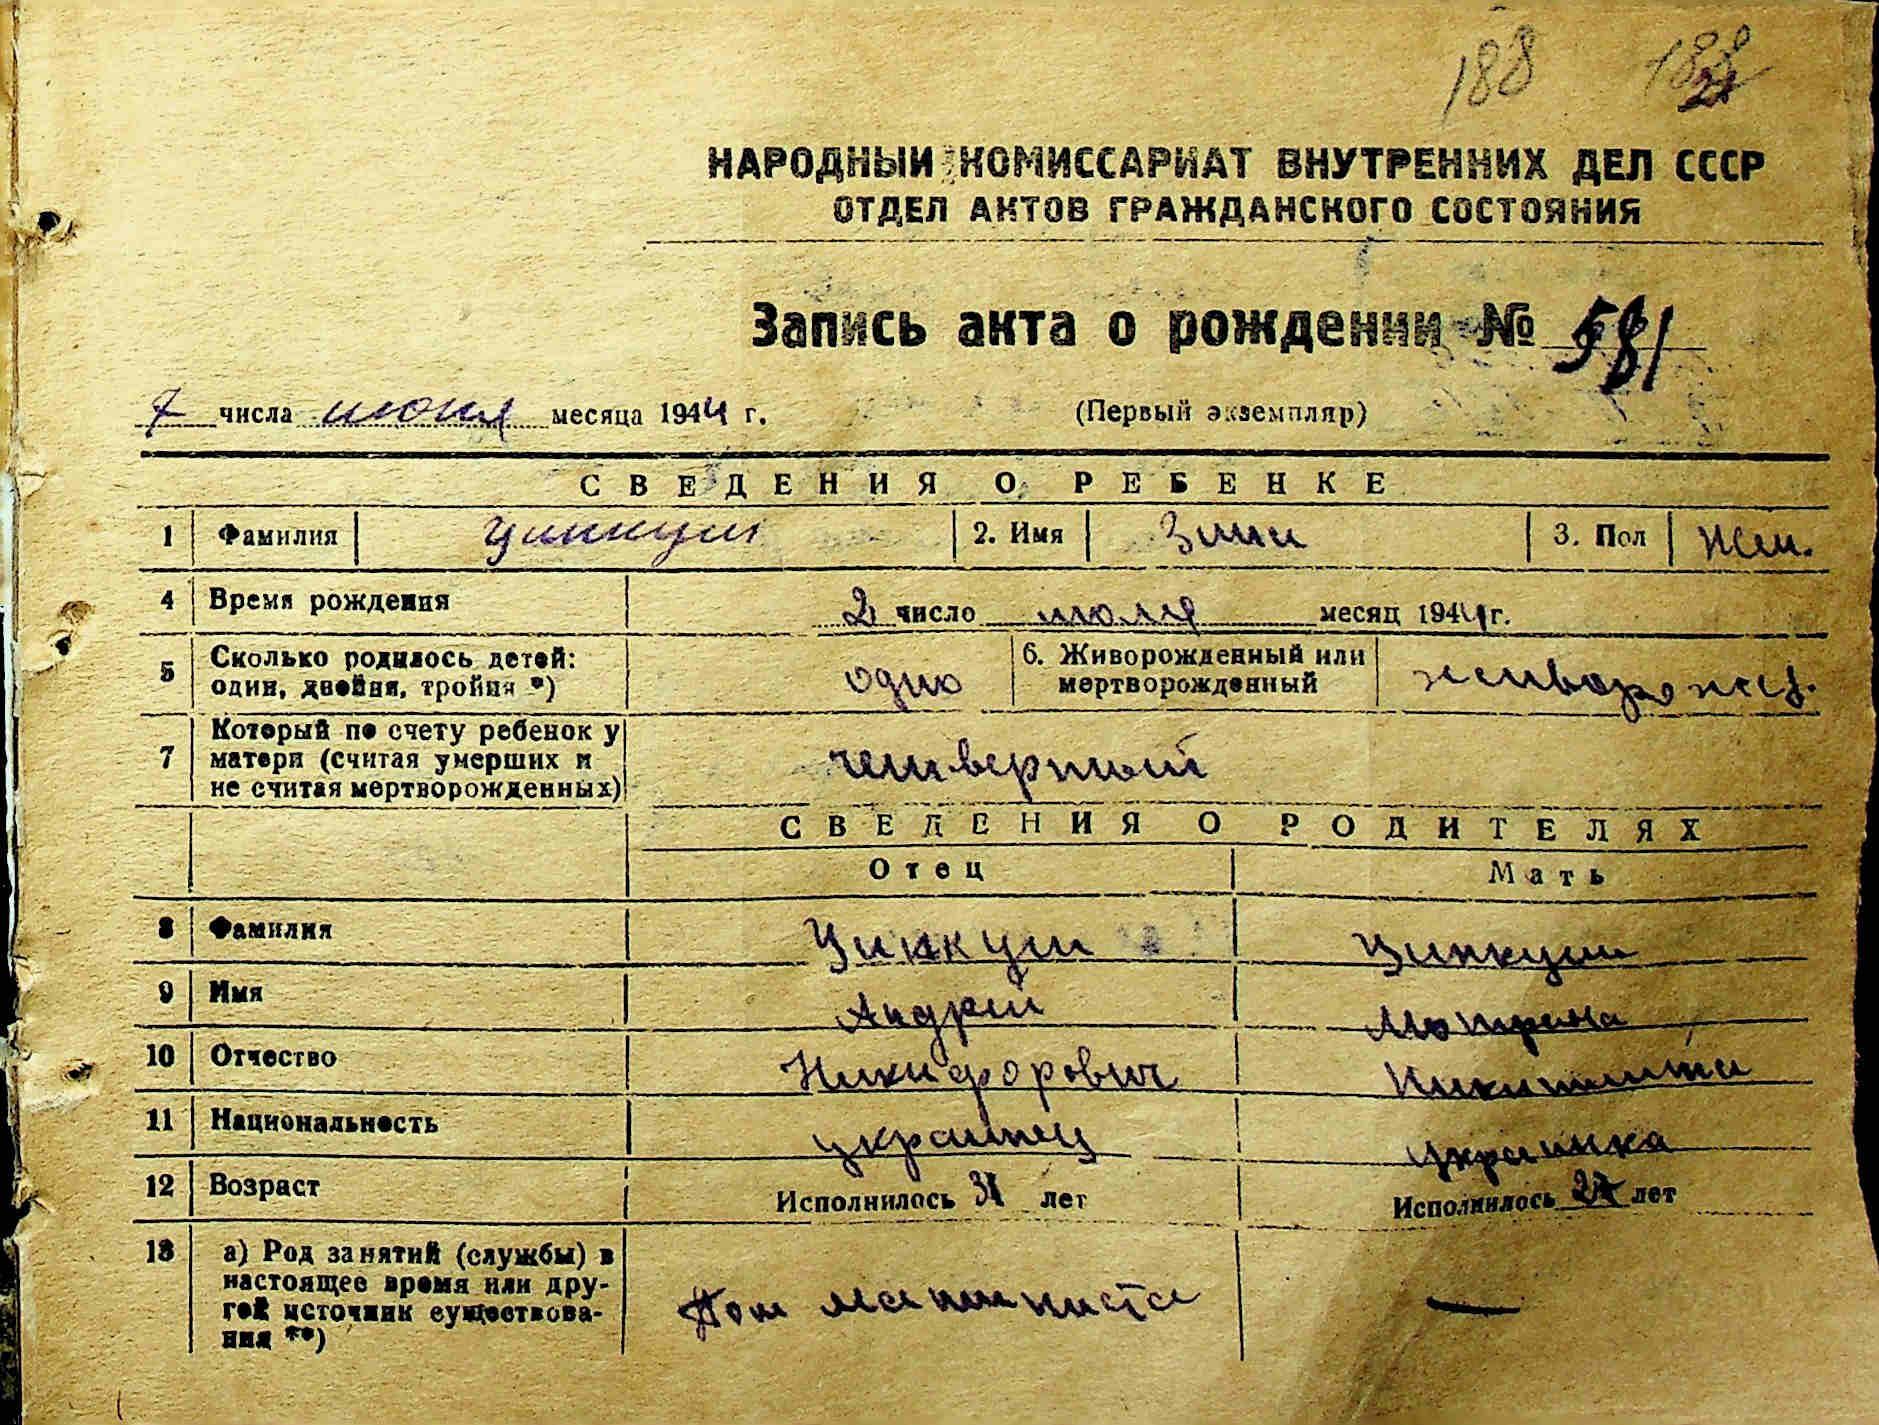 188 188
21
НАРОДНЫЙ КОМИССАРИАТ ВНУТРЕННИХ ДЕЛ СССР
ОТДЕЛ АКТОВ ГРАЖДАНСКОГО СОСТОЯНИЯ
Запись акта о рождении № 581
7 числа июля месяца 1944 г. (Первый экземпляр)
СВЕДЕНИЯ О РЕБЕНКЕ
1 Фамилия 2. Имя 3. Пол жен.
4 Время рождения 2 число июля месяц 1944 г.
5 Сколько родилось детей: один, двойня, тройня *) одно 6. Живорожденный или мертворожденный живорожд.
7 Который по счету ребенок у матери (считая умерших и не считая мертворожденных) четвертый
СВЕДЕНИЯ О РОДИТЕЛЯХ
Отец Мать
8 Фамилия
9 Имя Андрей Мотрена
10 Отчество Никифорович
11 Национальность украинец украинка
12 Возраст Исполнилось 31 лет Исполнилось 27 лет
13 а) Род занятий (службы) в настоящее время или другой источник существования **) Пом машиниста —